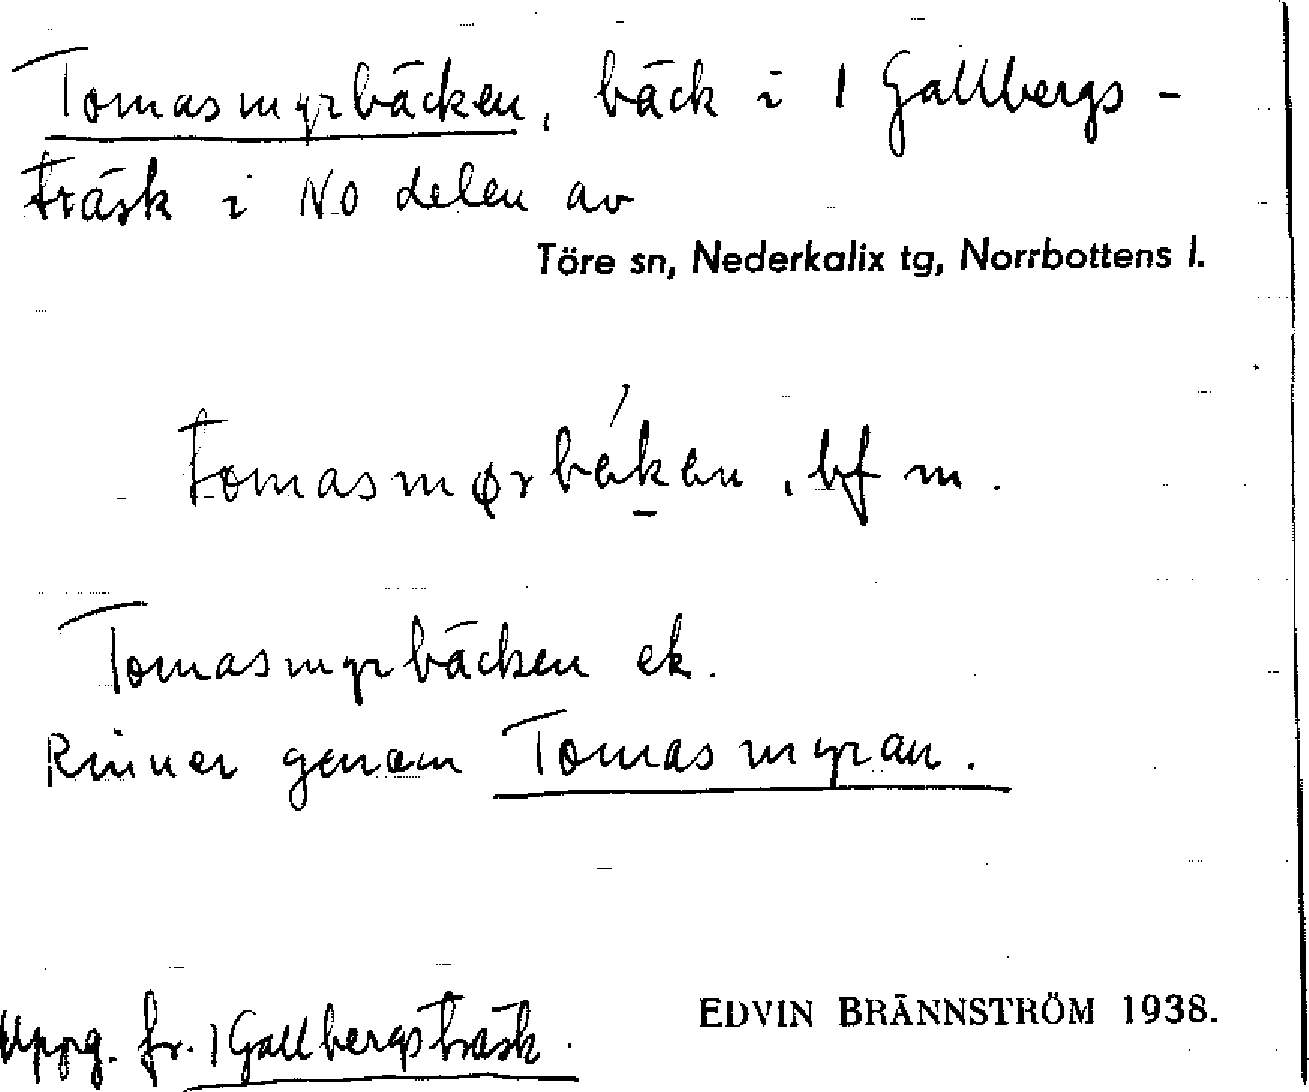 Tomasmyrbäcken, bäck i 1 Gallbergs-
träsk i NO delen av
Töre sn, Nederkalix tg, Norrbottens l.
tomasmørbékən, bf m.
Tomasmyrbäcken ek.
Rinner genom Tomasmyran.
Uppg. fr. 1 Gallbergsträsk.
EDVIN BRÄNNSTRÖM 1938.